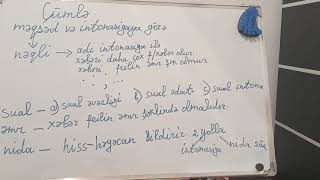 Cümlə
məqsəd və intonasiyaya görə
nəqli → adi intonasiya ilə
xəbəri daha çox f/xəbər olur
xəbəri feilin əmr şək. olmur
. ; , ; ...
sual – a) sual əvəzliyi b) sual ədatı c) sual intona
əmr – xəbər feilin əmr şəklində olmalıdır.
nida – hiss-həyəcan bildirir 2 yolla
intonasiya nida söz